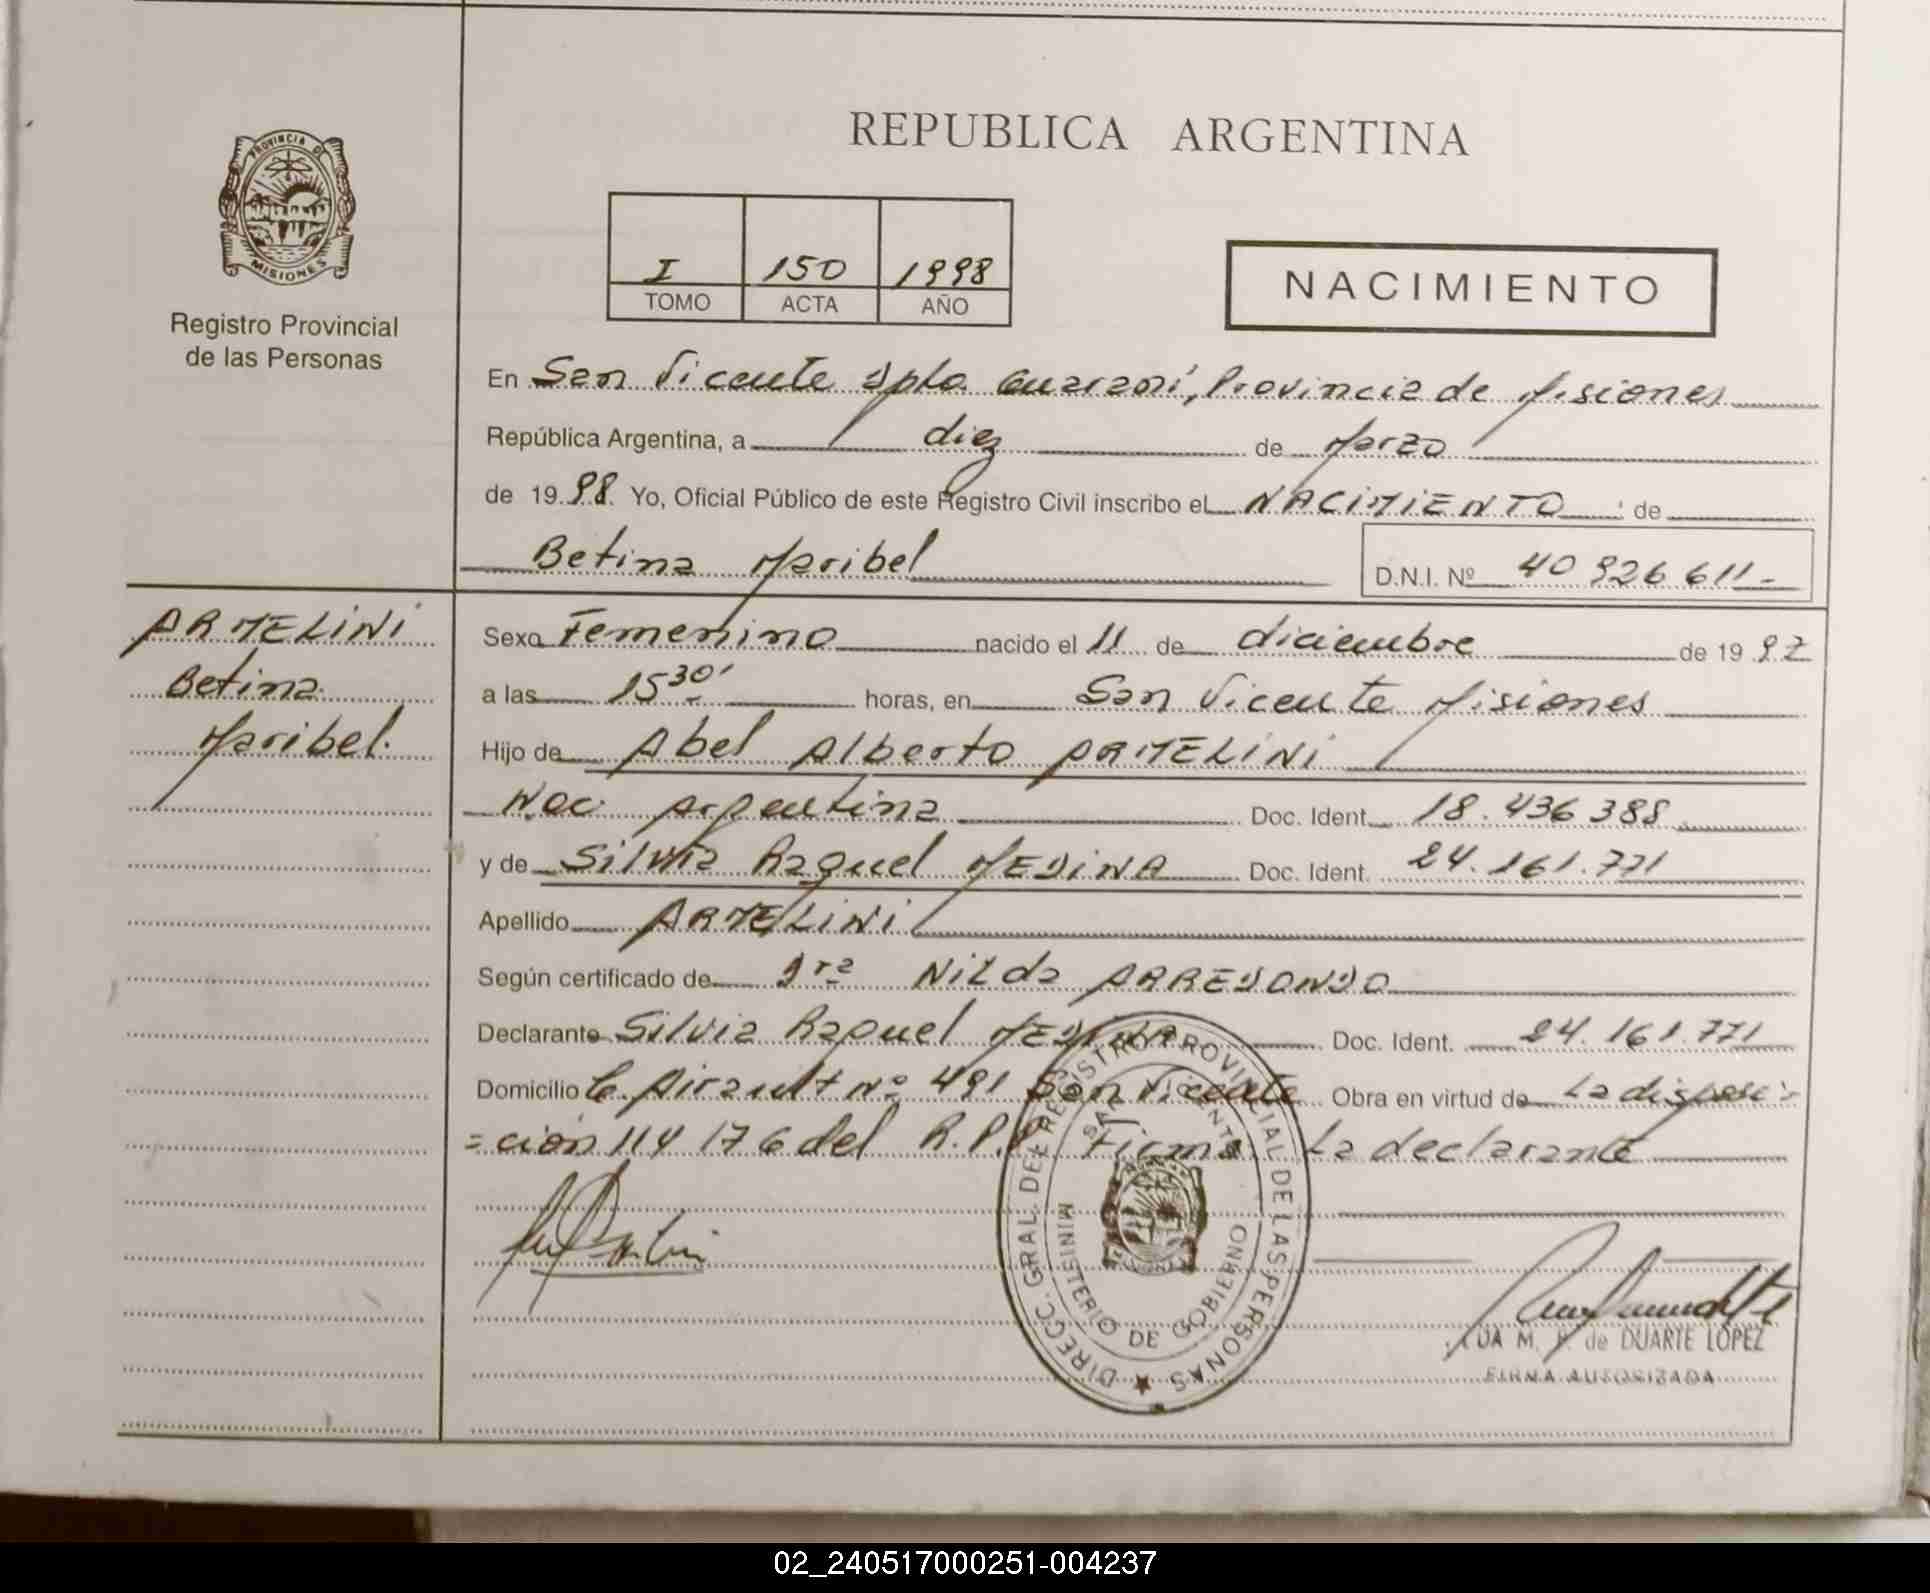 REPUBLICA ARGENTINA
PROVINCIA DE
MISIONES
Registro Provincial
de las Personas
I 150 1998
TOMO ACTA AÑO
NACIMIENTO
En San Vicente Dpto. Guaraní, Provincia de Misiones
República Argentina, a diez de Marzo
de 1998. Yo, Oficial Público de este Registro Civil inscribo el NACIMIENTO de
Betina Maribel
D.N.I. Nº 40 926 611-
ARMELINI
Betina
Maribel.
Sexo Femenino nacido el 11 de diciembre de 1997
a las 15 30' horas, en San Vicente Misiones
Hijo de Abel Alberto ARMELINI
Nac. Argentina Doc. Ident. 18.436 388
y de Silvia Raquel MEDINA Doc. Ident. 24.161.771
Apellido ARMELINI
Según certificado de Dra Nilda ARREDONDO
Declarante Silvia Raquel MEDINA Doc. Ident. 24.161.771
Domicilio C. nº 491 San Vicente Obra en virtud de La disposi=
=ción 114 176 del R.P.P. Firma La declarante
DIRECC. GRAL. DEL REGISTRO PROVINCIAL DE LAS PERSONAS
SAN VICENTE
MINISTERIO DE GOBIERNO
M. de DUARTE LOPEZ
FIRMA AUTORIZADA
02_240517000251-004237